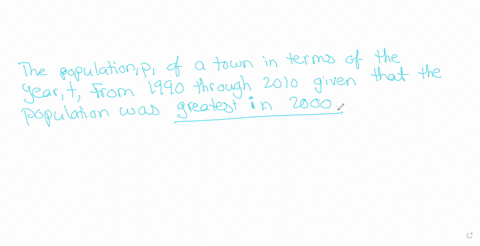 The population, p, of a town in terms of the
year, t, from 1990 through 2010 given that the
population was greatest in 2000.